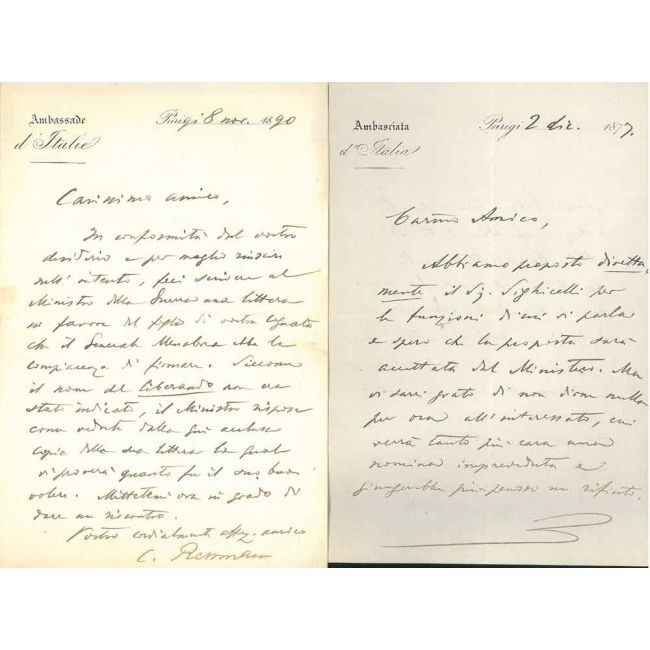 Ambassade
d'Italie
Parigi 8 nov. 1890
Carissimo amico,
In conformità del vostro
desiderio e per meglio riuscire
nell'intento, feci scrivere al
Ministro della Guerra una lettera
in favore del figlio di vostro cognato
che il Generale Menabrea ebbe la
compiacenza di firmare. Siccome
il nome del liberando non era
stato indicato, il Ministro rispose
come vedrete dalla qui acclusa
copia della sua lettera la quale
vi proverà quanto fu il suo buon
volere. Mettetemi ora in grado di
dare un riscontro.
Vostro cordialmente affez. amico
C. Ressman
Ambasciata
d'Italia
Parigi 2 dic. 1877.
Carmo Amico,
Abbiamo proposto diretta-
mente il Sig. Sighicelli per
le funzioni di cui si parla
e spero che la proposta sarà
accettata dal Ministero. Ma
vi sarei grato di non dirne nulla
per ora all'interessato, cui
verrà tanto più cara una
nomina impreveduta e
giungerebbe più penoso un rifiuto.